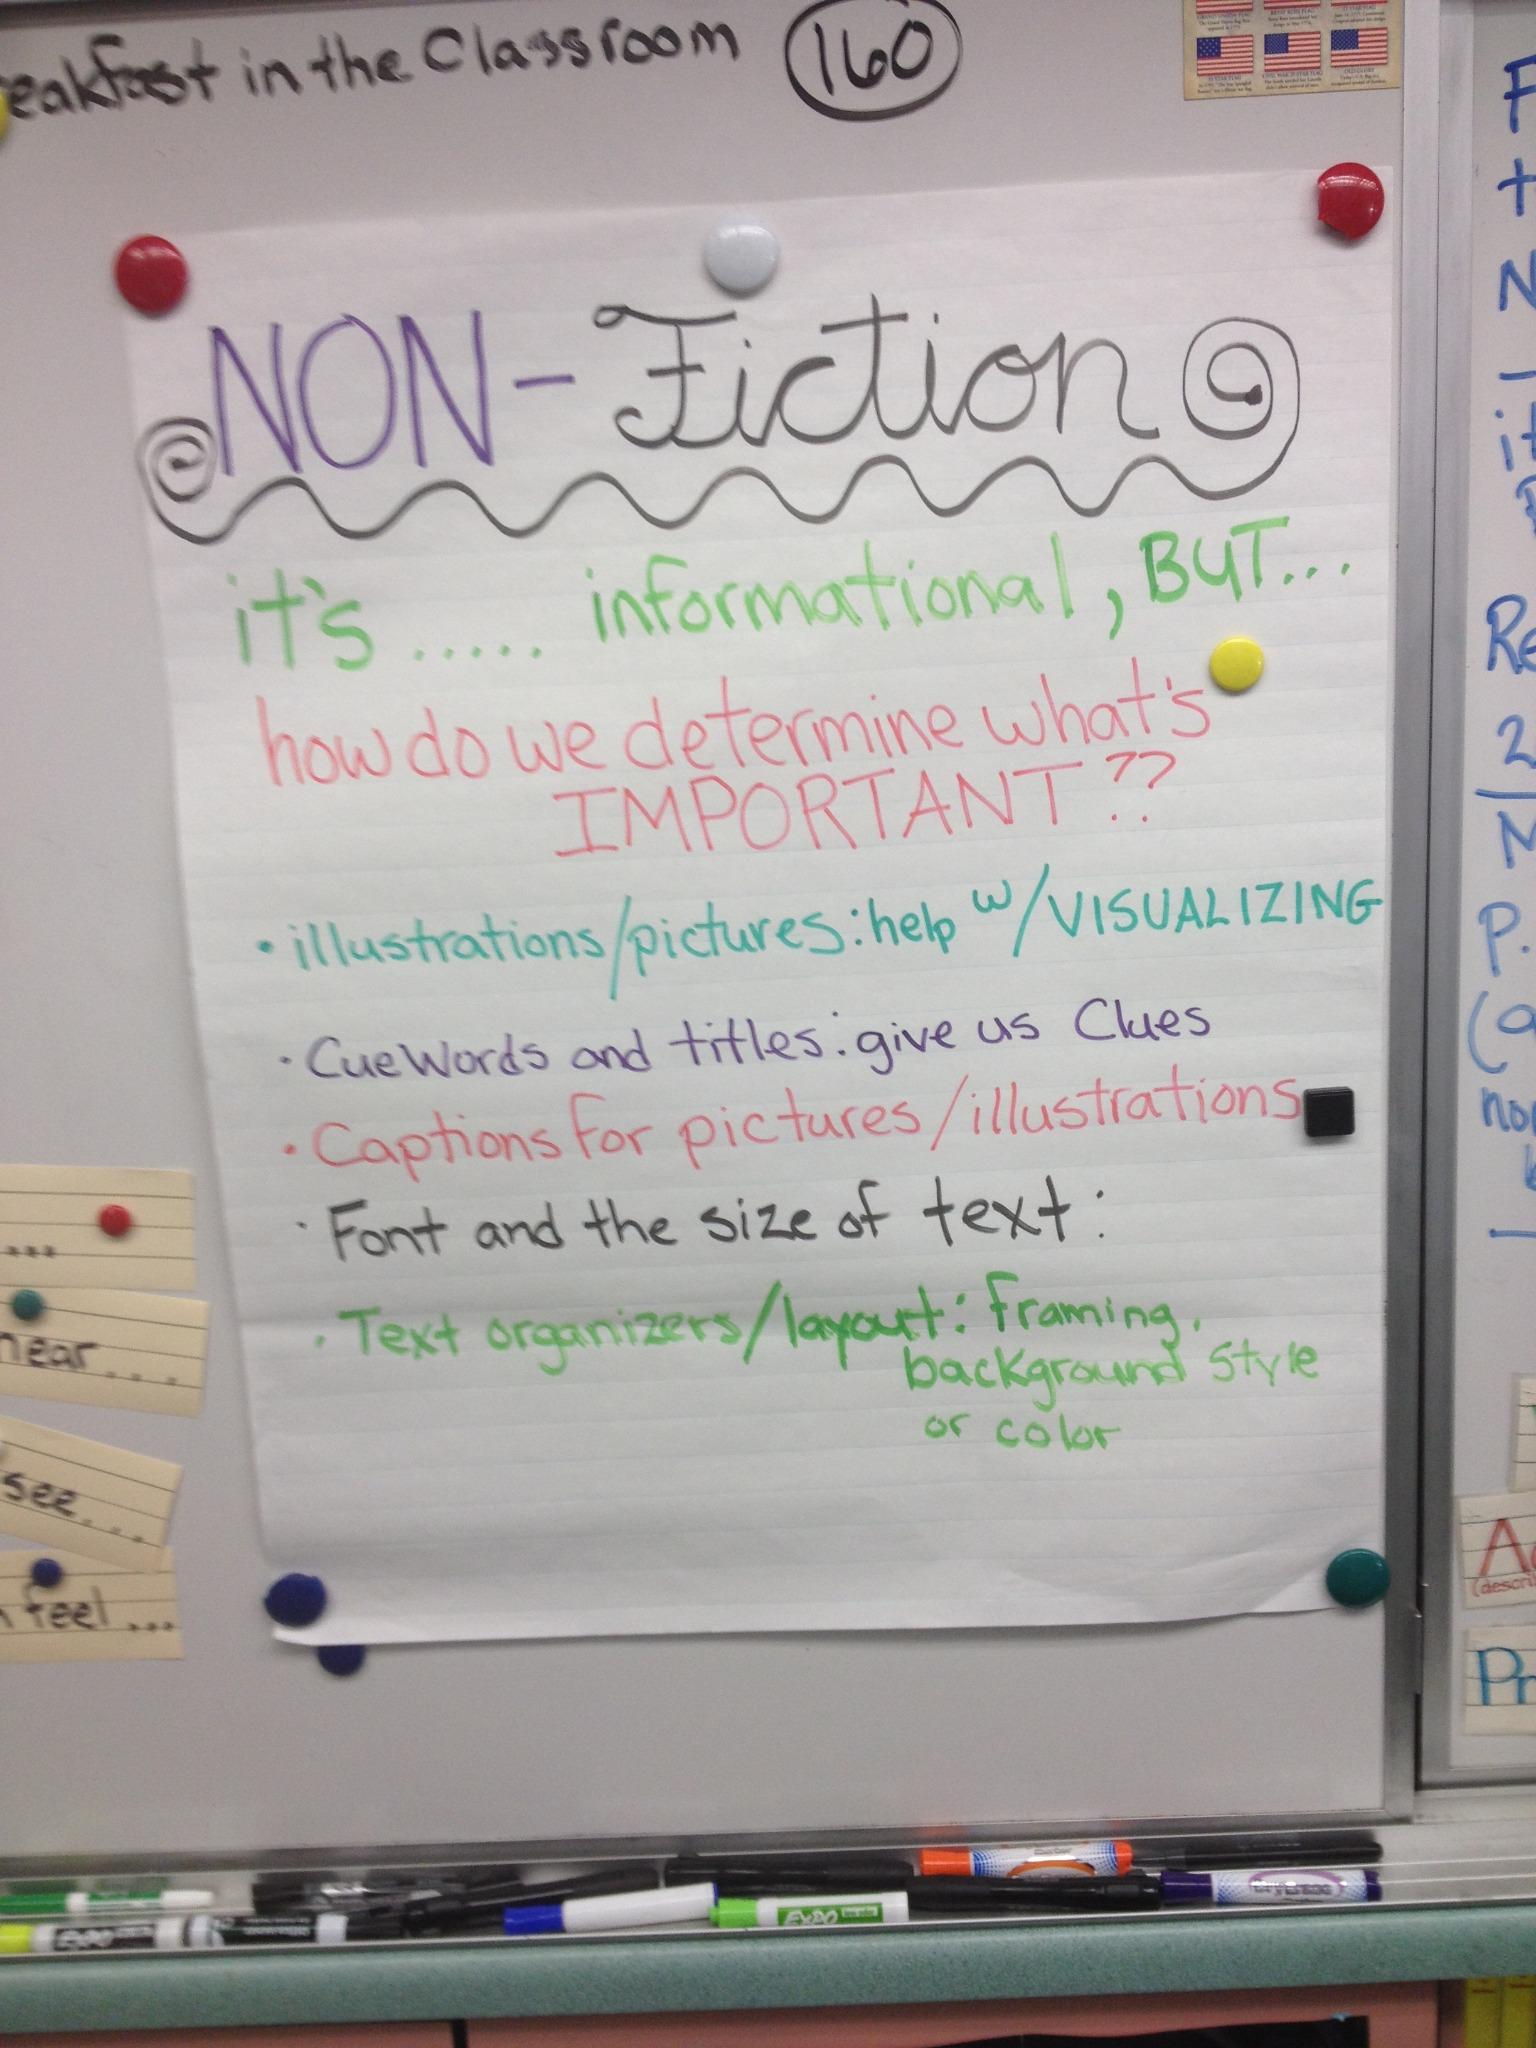 in the Classroom 160
NON-Fiction
it's ..... informational, BUT...
how do we determine what's
IMPORTANT??
• illustrations/pictures: help w/VISUALIZING
• Cue Words and titles: give us Clues
• Captions for pictures/illustrations
• Font and the size of text:
• Text organizers/layout: framing,
background style
or color
...
see....
feel ...
EXPO
EXPO